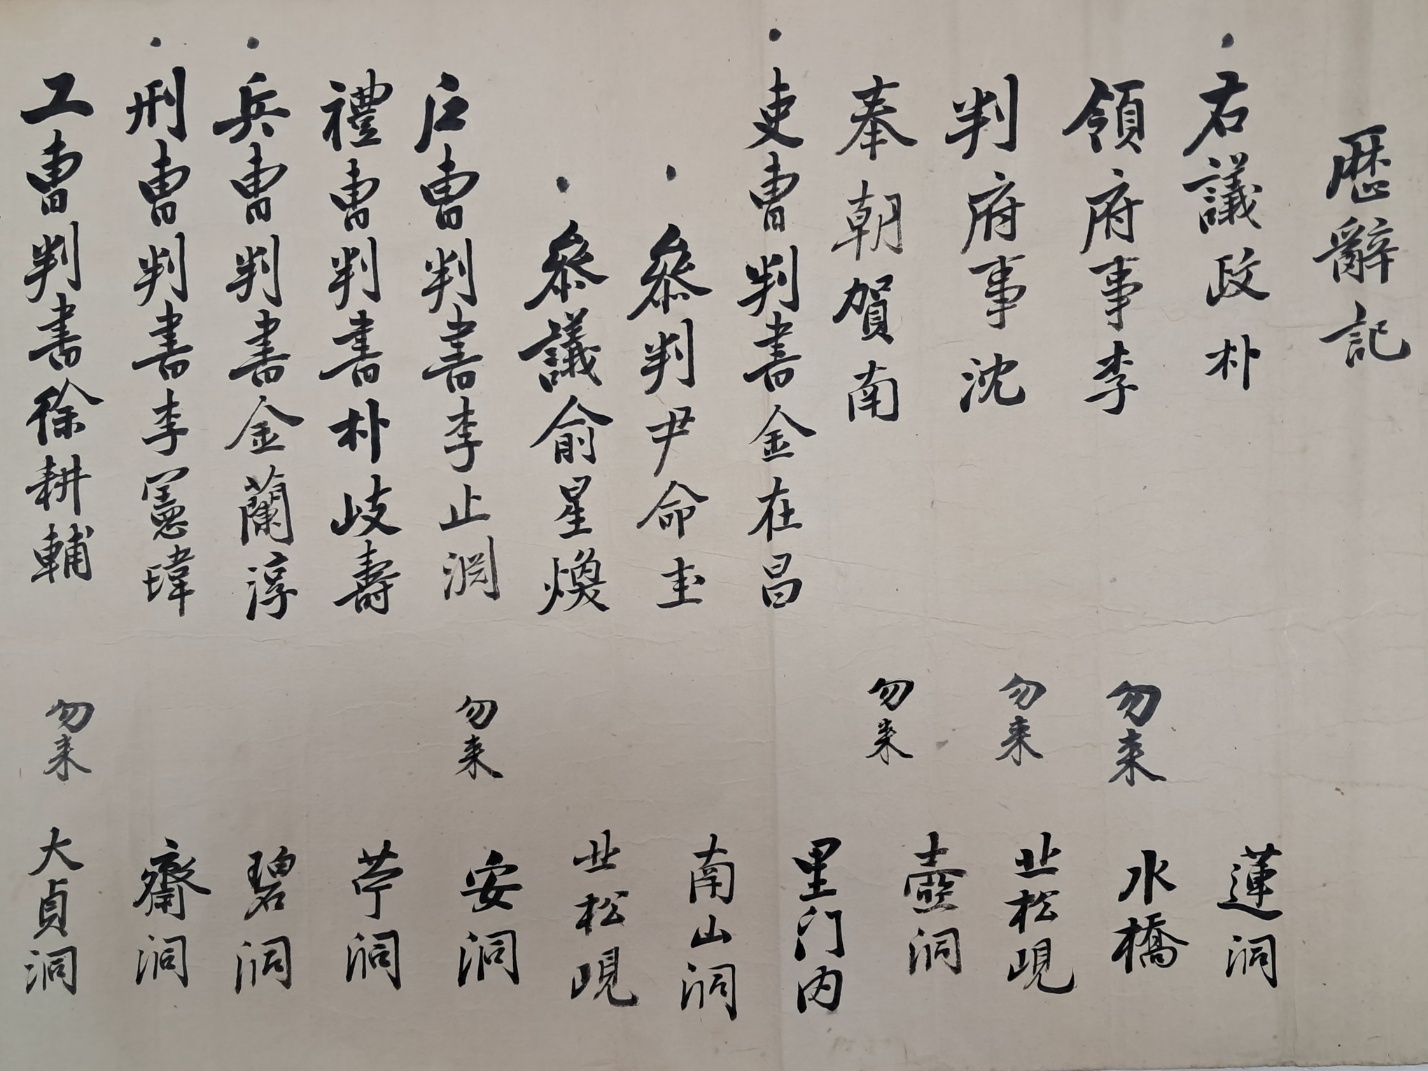 歷辭記
右議政朴 蓮洞
領府事李 勿來 水橋
判府事沈 勿來 北松峴
奉朝賀南 勿來 壺洞
吏曹判書金在昌 里门內
參判尹命圭 南山洞
參議俞星煥 北松峴
戶曹判書李止淵 勿來 安洞
禮曹判書朴岐壽 苧洞
兵曹判書金蘭淳 碧洞
刑曹判書李憲瑋 齋洞
工曹判書徐耕輔 勿來 大貞洞